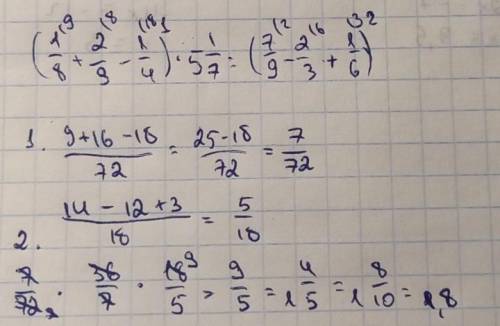 (1/8 (9 + 2/9 (8 - 1/4 (18) · 5 1/7 : (7/9 (2 - 2/3 (6 + 1/6 (3)
1. (9+16-18)/72 = (25-18)/72 = 7/72
2. (14-12+3)/18 = 5/18
7/72 2 · 36/7 · 18 9/5 = 9/5 = 1 4/5 = 1 8/10 = 1,8